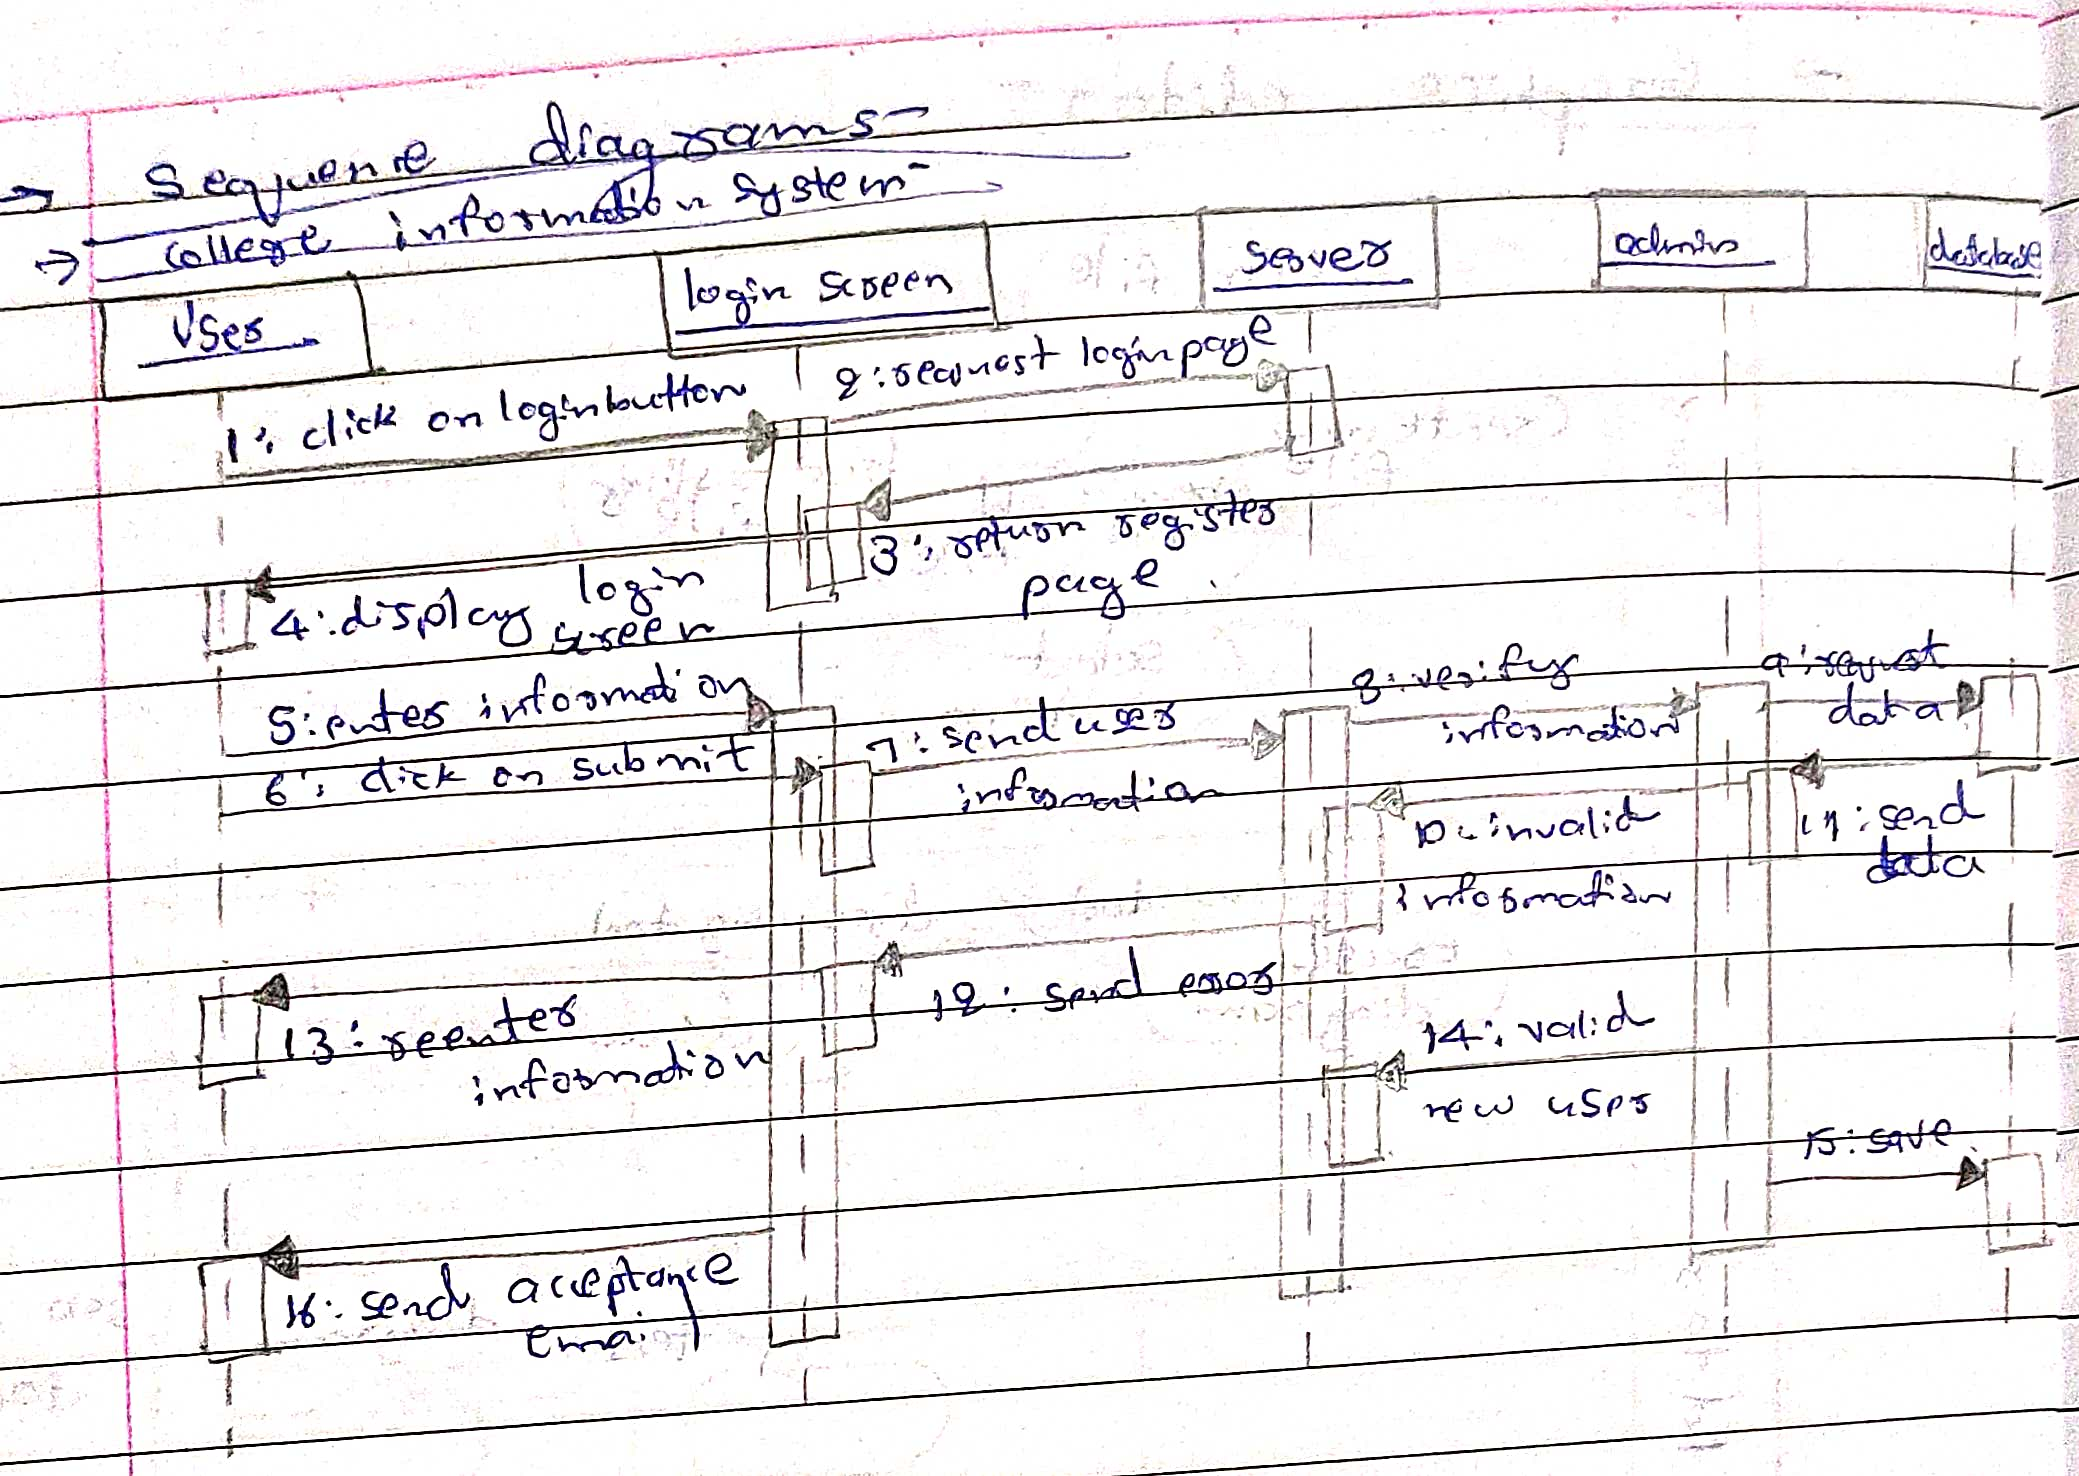 → Sequence diagrams-
→ college information system-
User
login screen
server
admin
database
1: click on loginbutton
2: request login page
3: return register
page.
4: display login
screen
5: enter information
6: click on submit
7: send user
information
8: verify
information
9: request
data
10: invalid
information
11: send
data
12: send error
13: reenter
information
14: valid
new user
15: save
16: send acceptance
email